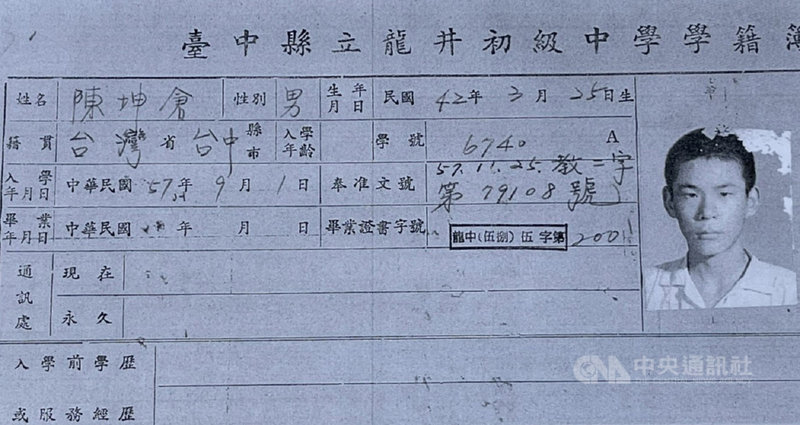 臺中縣立龍井初級中學學籍簿
姓名 陳坤倉 性別 男 生年月日 民國42年3月25日生
籍貫 台灣省台中縣市 入學年齡 學號 6740 A
入學年月日 中華民國57年9月1日 奉准文號 57.11.25.教二字第79108號
畢業年月日 中華民國 年 月 日 畢業證書字號 龍中(伍捌)伍字第200
通訊處 現在
永久
入學前學歷
或服務經歷
中央通訊社
THE CENTRAL NEWS AGENCY